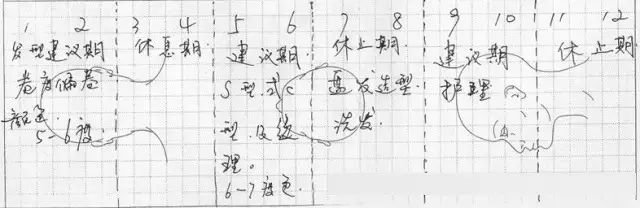 1 2 3 4 5 6 7 8 9 10 11 12
发型建议期 休息期 建议期 休止期 建议期 休止期
卷度偏卷 S型或C 盘发造型 护理
颜色 型及纹 洗发
5-6度 理。
6-7度色